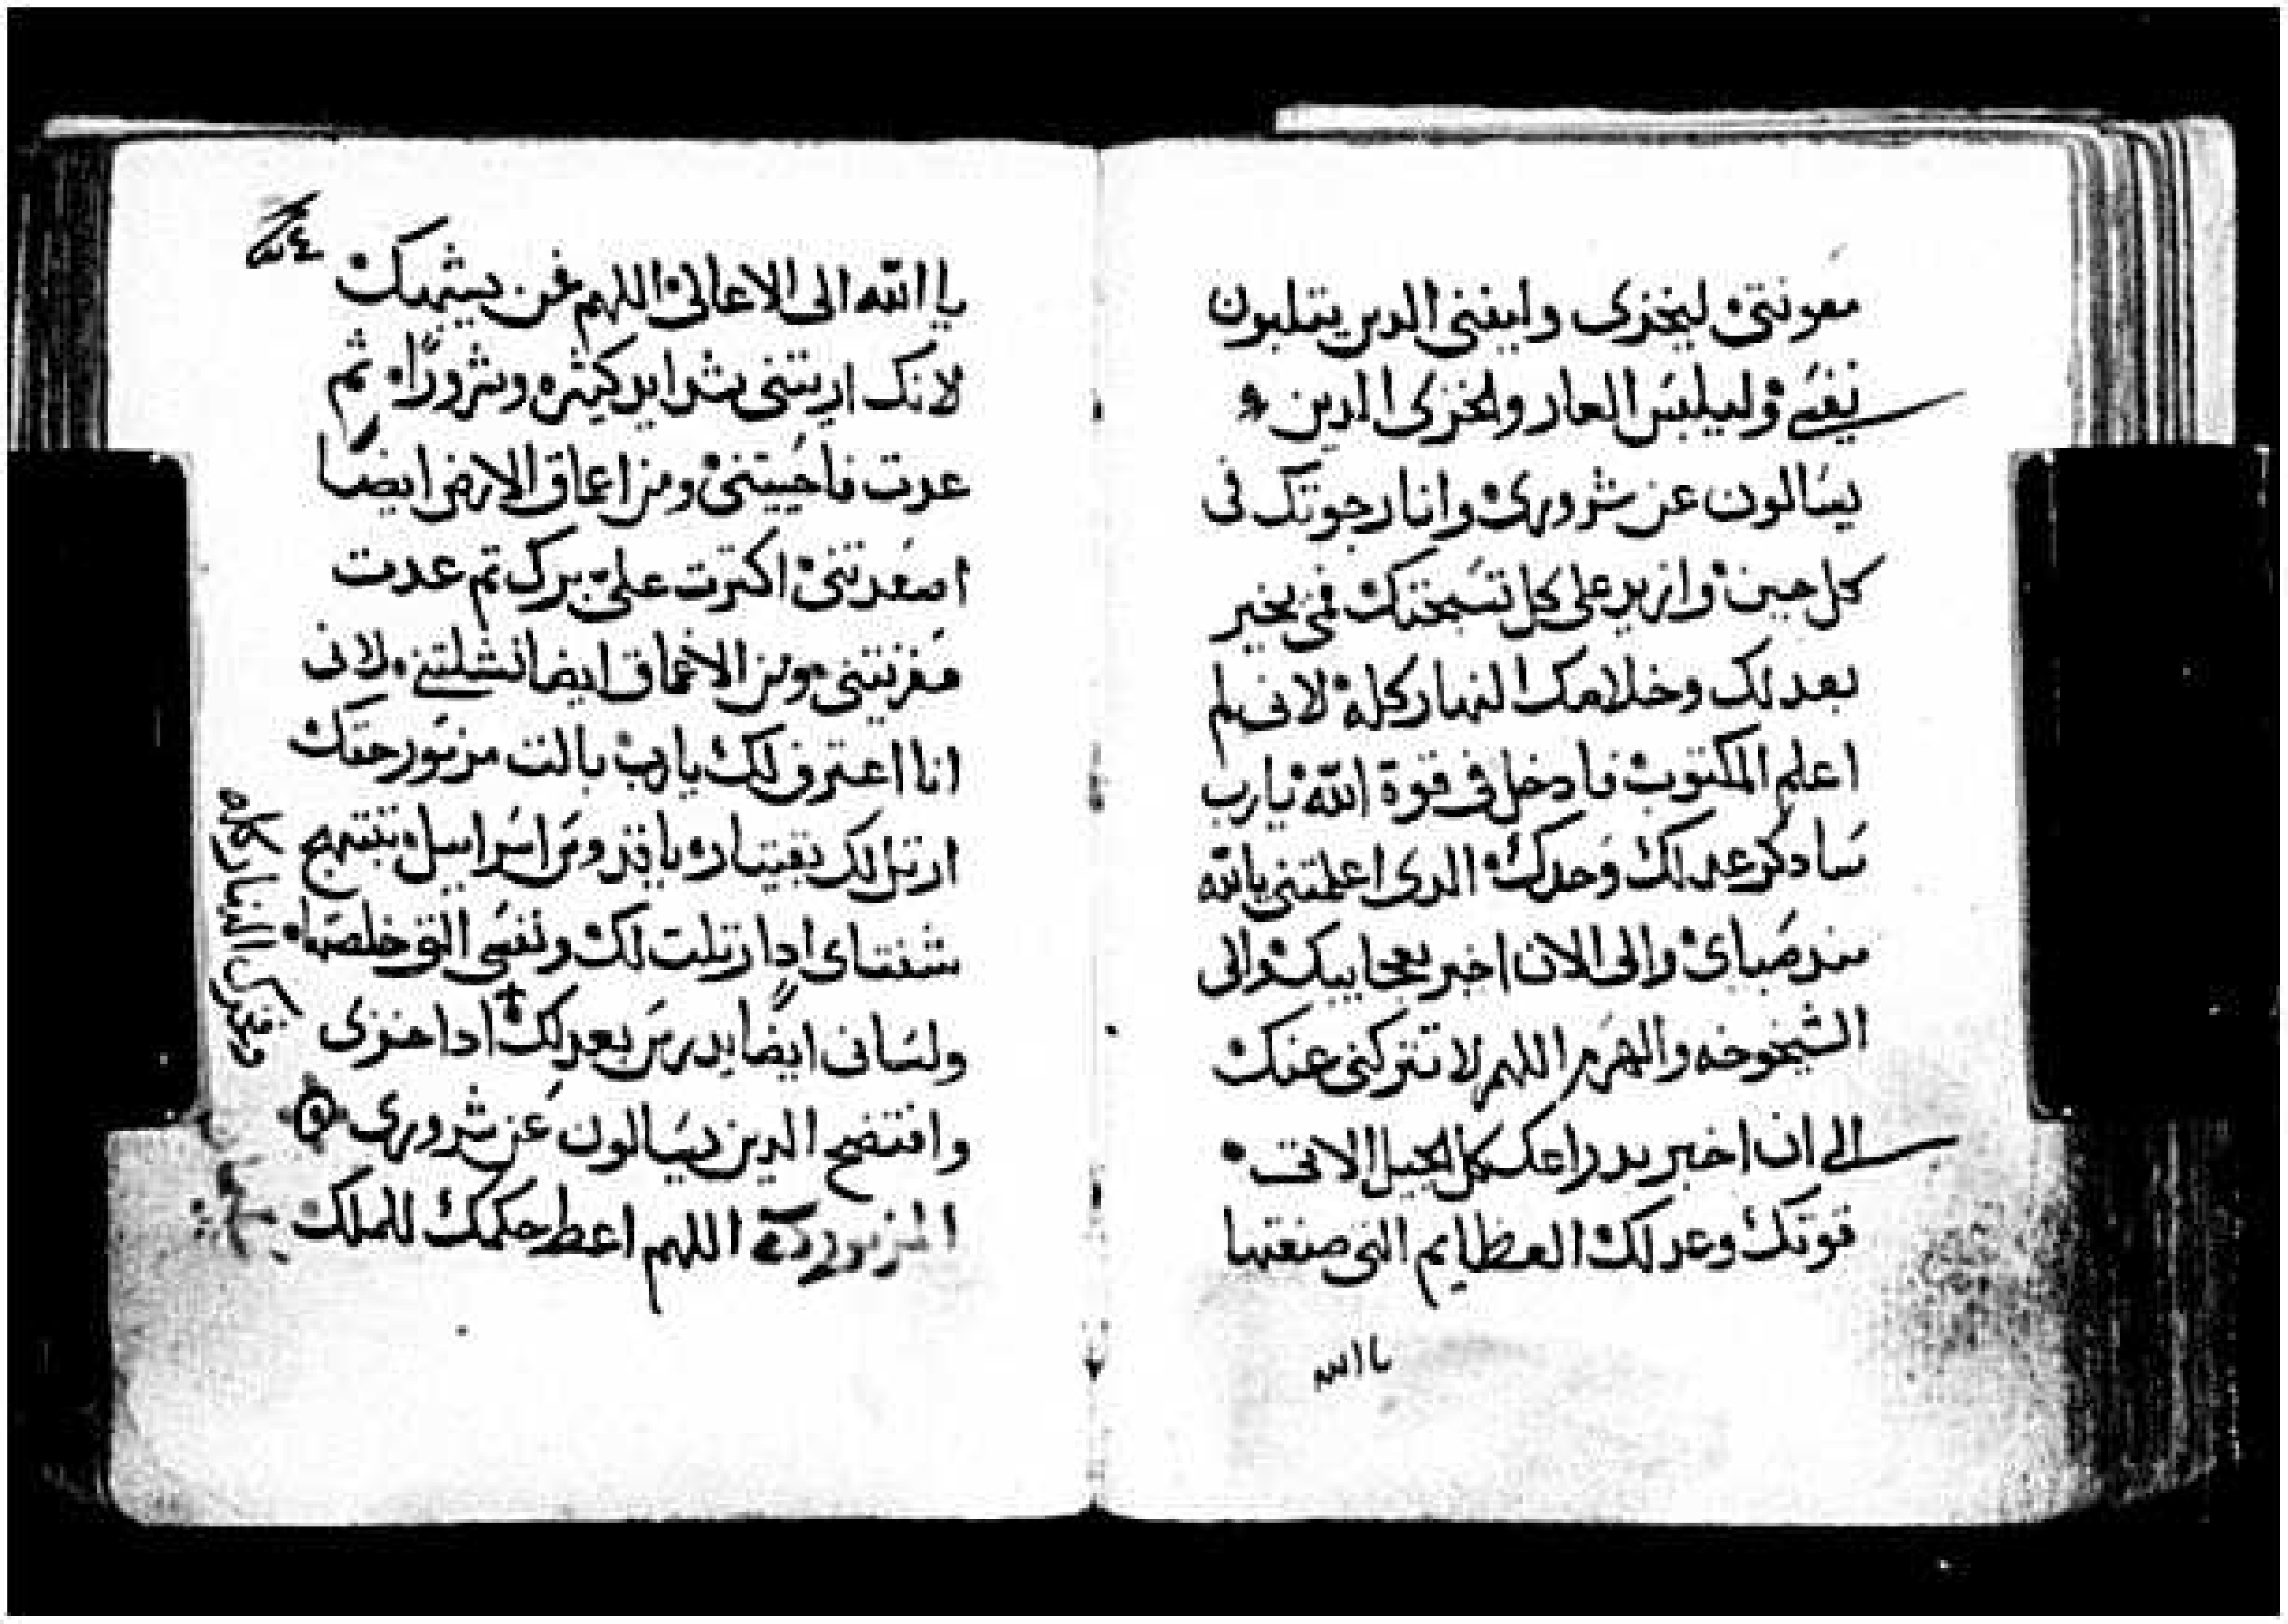 معونتى ليخزى وليفنى الدين يتلبون
نفسى وليلبس العار والخزى الدين
يسالون عن شرورى وانا رجوتك فى
كل حين وازيد على كل تسبحتك فمى يخبر
بعدلك وخلاصك النهار كله لانى لم
اعلم المكتوب فادخل فى قوة الله يارب
سادكر عدلك وحدك الدى اعلمتنى يالله
مند صباى والى الان اخبر بعجايبك والى
الشيخوخه والهرم اللهم لا تتركنى عنك
الى ان اخبر بدراعك كل الجيل الاتى
قوتك وعدلك العظايم التى صنعتها
ياالله الى الاعالى اللهم فمن يشبهك
لانك اريتنى شدايد كثيره وشرورًا ثم
عدت فاحييتنى ومن اعماق الارض ايضا
اصعدتنى اكترت على برك تم عدت
فعزيتنى ومن الاعماق ايضا نشلتنى لانى
انا اعترف لك يارب بالت مزمور حقك
ارتل لك بقيتاره ياقدوس اسراييل تبتهج
شفتاى ادا رتلت لك ونفسى التى خلصتها
ولسانى ايضًا يدرس بعدلك ادا خزى
وافتضح الدين يسالون عن شرورى
المزمور اللهم اعط حكمك للملك
النهار كله